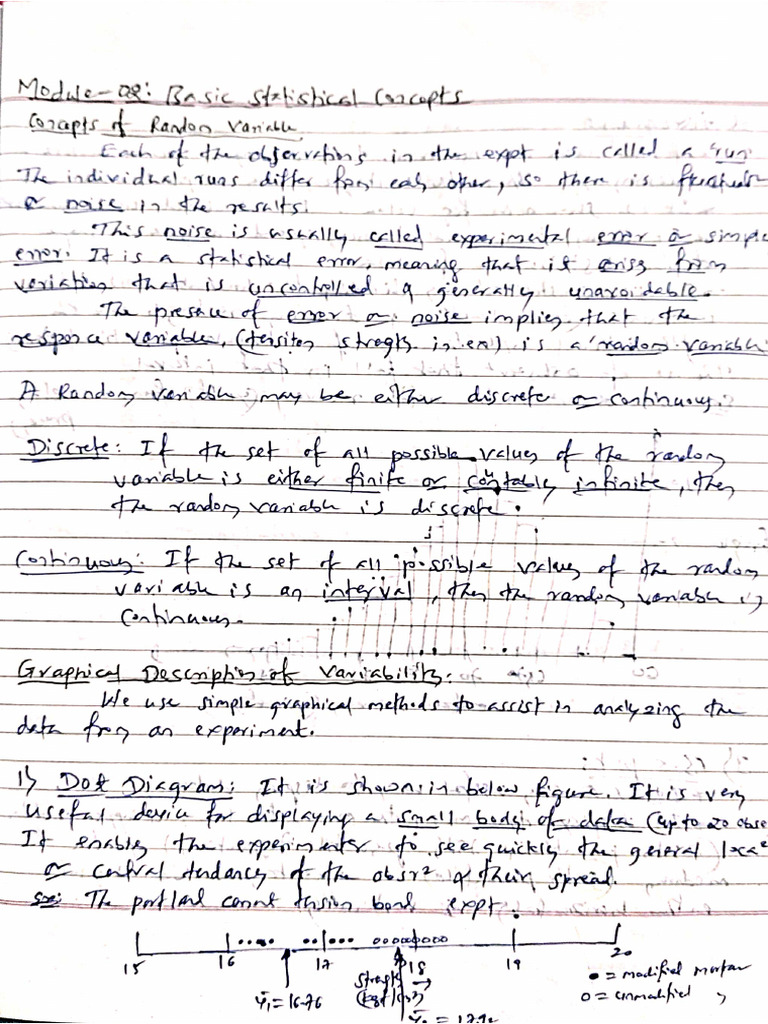 Module-02: Basic Statistical Concepts
Concepts of Random Variable
Each of the observations in the expt is called a run.
The individual runs differ from each other, so there is
or noise in the results.
This noise is usually called experimental error or simple
error. It is a statistical error, meaning that it arises from
variation that is uncontrolled & generally unavoidable.
The presence of error or noise implies that the
response variable, (tension strength in ex) is a 'random variable'
A Random variable may be either discrete or continuous.
Discrete: If the set of all possible values of the random
variable is either finite or countably infinite, then
the random variable is discrete.
Continuous: If the set of all possible values of the random
variable is an interval, then the random variable is
continuous.
Graphical Description of Variability:
We use simple graphical methods to assist in analyzing the
data from an experiment.
1) Dot Diagram: It is shown in below figure. It is very
useful device for displaying a small body of data (up to 20 obse
It enables the experimenter to see quickly the general
or central tendancy of the obsr & their spread.
The portland cement tension bond expt:
15 16 17 18 19 20
Strength → (kgf/cm²)
• = modified mortar
ȳ₁ = 16.76
o = unmodified "